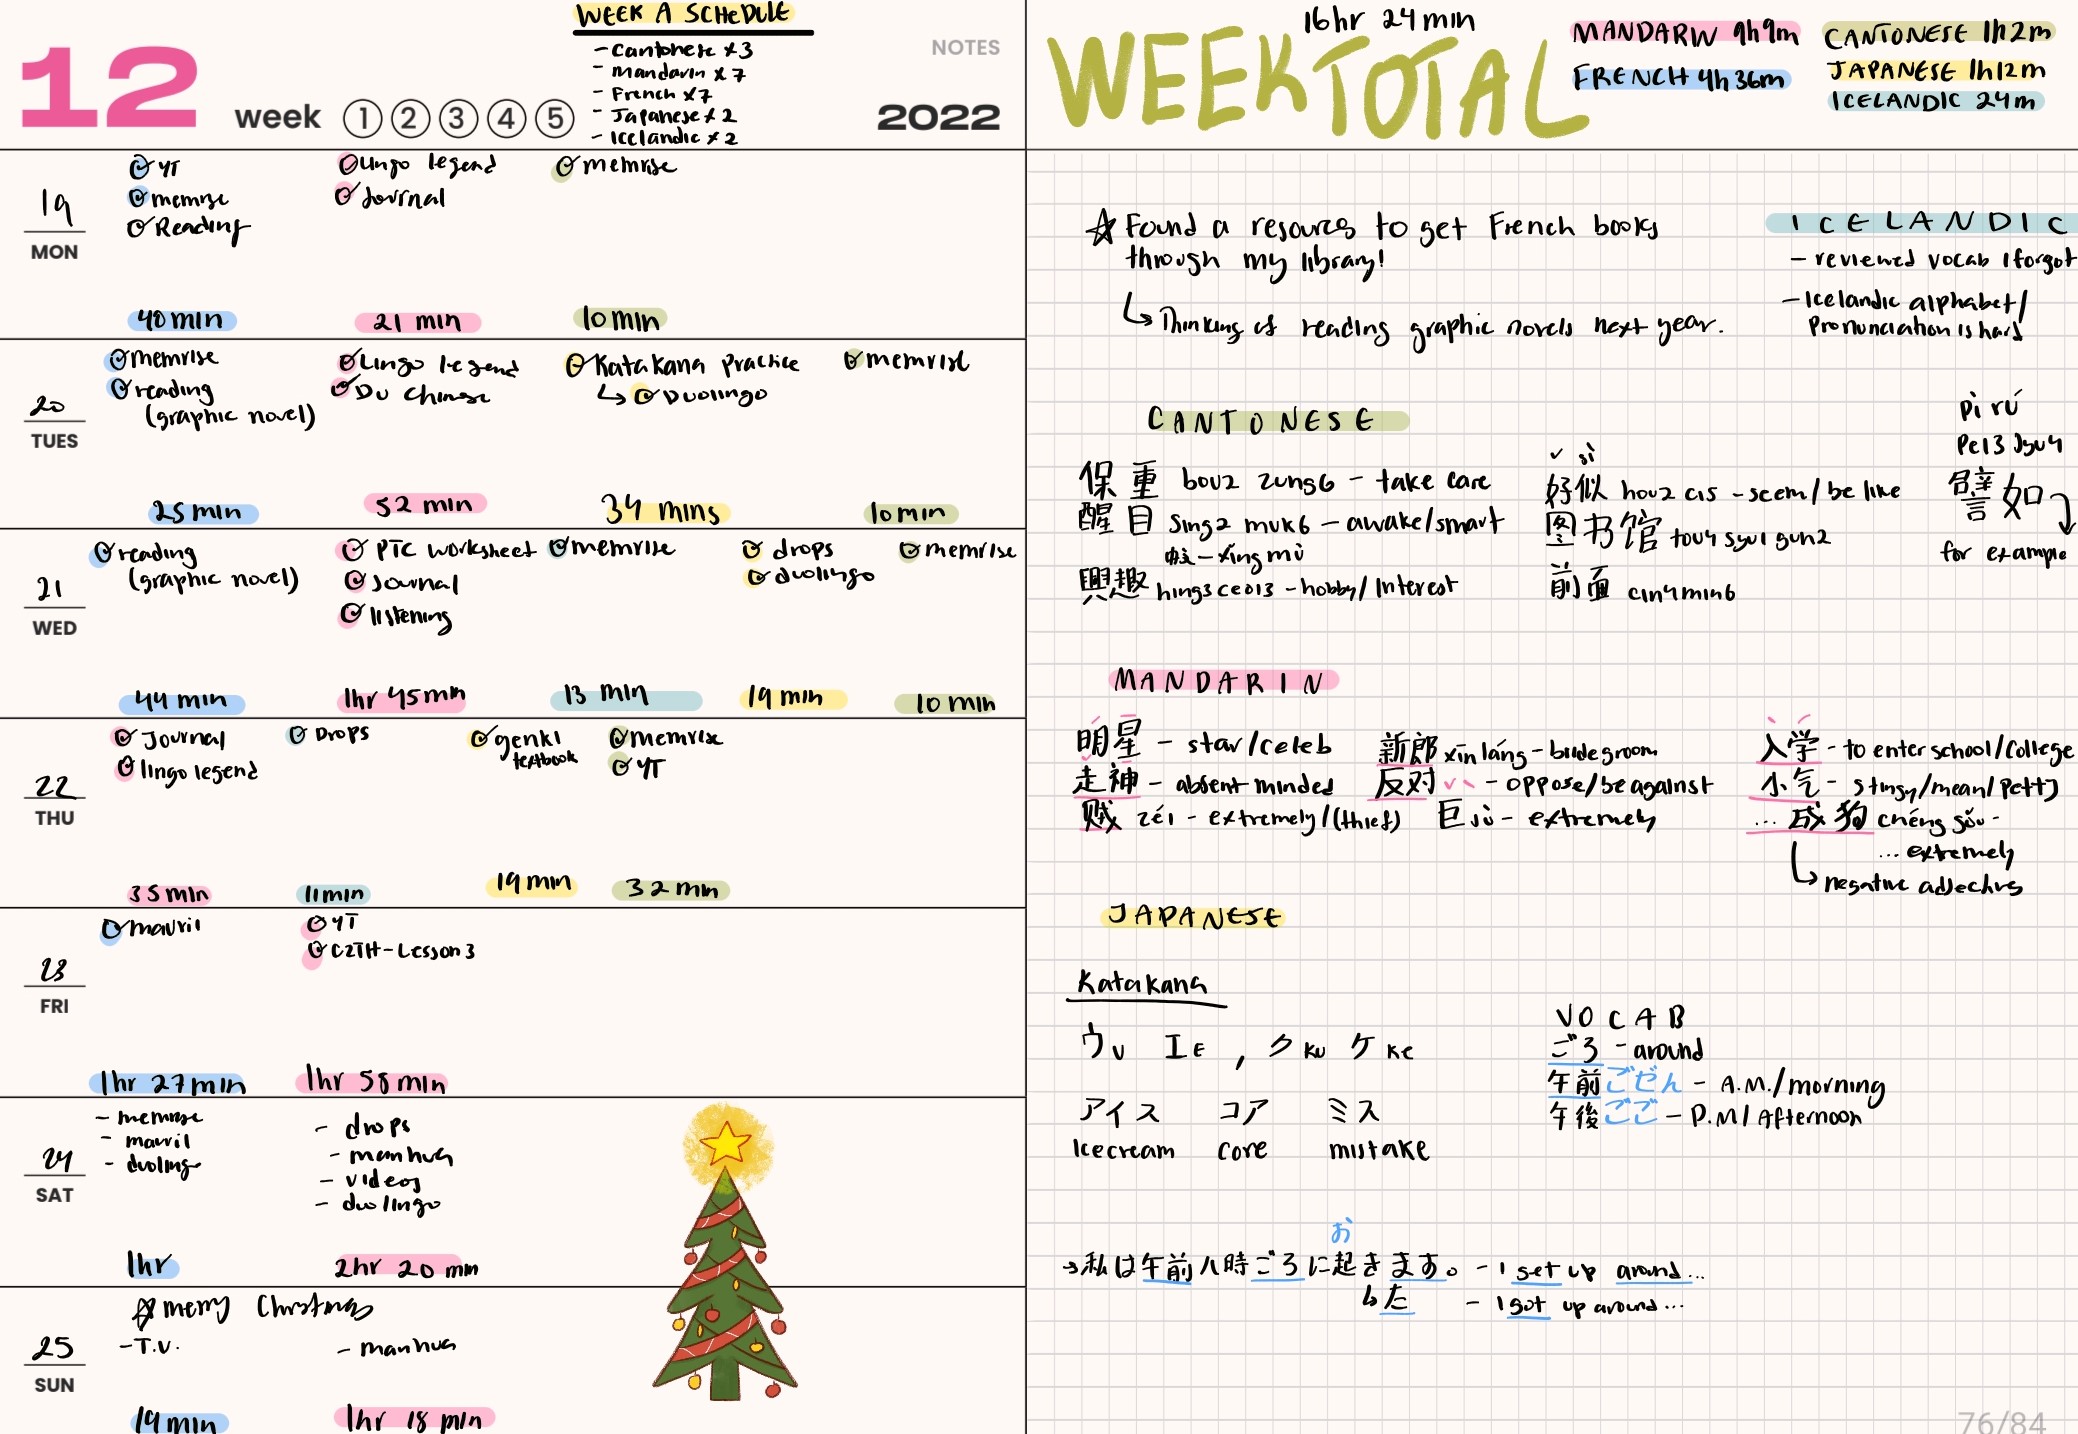 WEEK A SCHEDULE
- Cantonese x3
- Mandarin x7
- French x7
- Japanese x2
- Icelandic x2
12
week 1 2 3 4 5
NOTES
2022
19
MON
YT
memrise
Reading
40 min
Lingo legend
Journal
21 min
memrise
10 min
20
TUES
memrise
reading
(graphic novel)
25 min
Lingo legend
Du Chinese
52 min
Katakana practice
↳ Duolingo
34 mins
memrise
10 min
21
WED
reading
(graphic novel)
44 min
PTC worksheet
Journal
listening
1hr 45 min
memrise
13 min
drops
duolingo
19 min
memrise
10 min
22
THU
Journal
lingo legend
35 min
Drops
11 min
genki
textbook
19 min
memrise
YT
32 min
23
FRI
mauril
1hr 27 min
YT
CZTH - Lesson 3
1hr 58 min
24
SAT
- memrise
- mauril
- duolingo
1hr
- drops
- manhua
- videos
- duolingo
2hr 20 min
25
SUN
☆ merry Christmas
- T.V.
19 min
- manhua
1hr 18 min
WEEK TOTAL
16hr 24min
MANDARIN 9h9m
FRENCH 4h 36m
CANTONESE 1h2m
JAPANESE 1h12m
ICELANDIC 24m
☆ Found a resource to get French books
through my library!
↳ Thinking of reading graphic novels next year.
ICELANDIC
- reviewed vocab I forgot
- Icelandic alphabet/
pronunciation is hard
CANTONESE
保重 bou2 zung6 - take care
醒目 sing2 muk6 - awake/smart
- xǐng mù
興趣 hing3 ceoi3 - hobby/interest
sì
好似 hou2 ci5 - seem/be like
图书馆 tou4 syu1 gun2
前面 cin4 min6
pì rú
pei3 jyu4
譬如
for example
MANDARIN
明星 - star/celeb
走神 - absent minded
贼 zéi - extremely/(thief)
新郎 xīn láng - bridegroom
反对 - oppose/be against
巨 jù - extremely
入学 - to enter school/college
小气 - stingy/mean/petty
... 成狗 chéng gǒu -
... extremely
↳ negative adjectives
JAPANESE
Katakana
ウ U エ E , ク ku ケ ke
アイス コア ミス
Icecream core mistake
VOCAB
ごろ - around
午前 ごぜん - A.M./morning
午後 ごご - P.M/Afternoon
お
→ 私は午前八時ごろに起きます。 - I get up around...
した - I got up around...
76/84